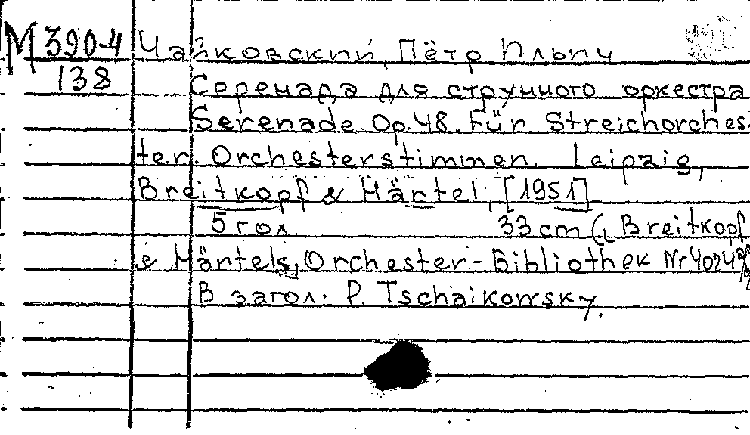 М 390-4 Чайковский, Пётр Ильич
138 Серенада для струнного оркестра
Serenade Op. 48. Für Streichorches-
ter. Orchesterstimmen. Leipzig,
Breitkopf & Härtel, [1951]
5 гол. 33 cm (Breitkopf
& Härtels, Orchester-Bibliothek Nr
В загол.: P. Tschaikowsky.